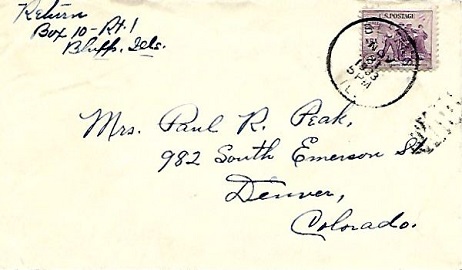 Return
Box 10 - Rt. 1
Bluffs, Ills.
U.S. POSTAGE
BLUFFS
NOV
21
1933
5 PM
ILL.
Mrs. Paul R. Peak,
982 South Emerson St
Denver,
Colorado.